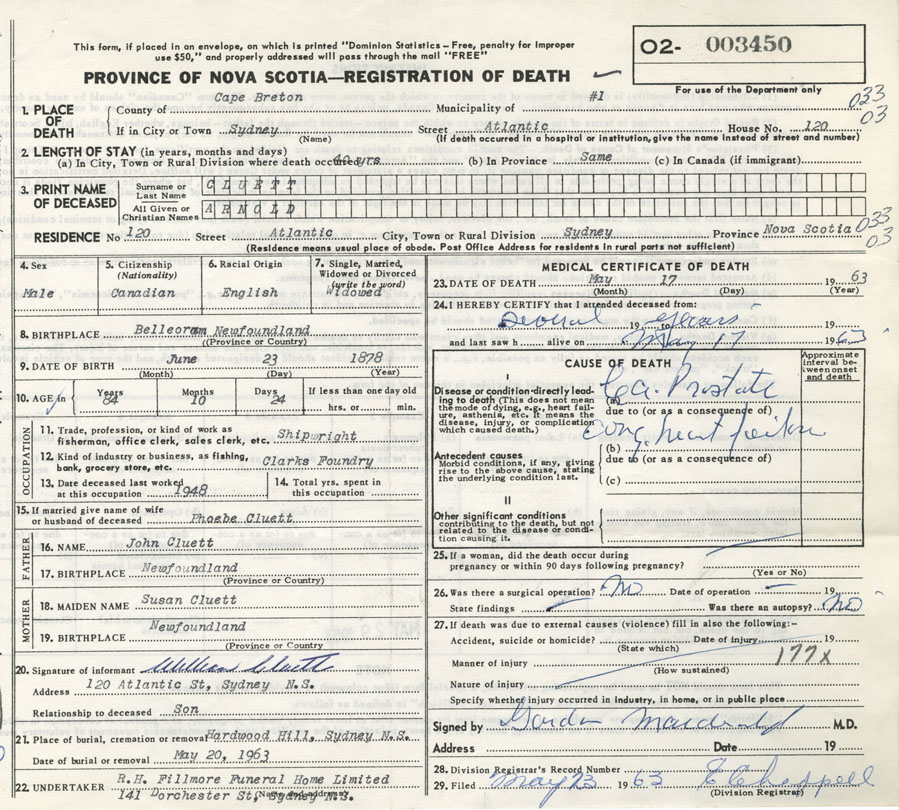 This form, if placed in an envelope, on which is printed "Dominion Statistics - Free, penalty for improper
use $50," and properly addressed will pass through the mail "FREE"
O2- 003450
PROVINCE OF NOVA SCOTIA—REGISTRATION OF DEATH
For use of the Department only
1. PLACE OF DEATH
County of Cape Breton Municipality of #1
033
03
If in City or Town Sydney Street Atlantic House No. 120
(Name) (If death occurred in a hospital or institution, give the name instead of street and number)
2. LENGTH OF STAY (in years, months and days)
(a) In City, Town or Rural Division where death occurred 40 yrs (b) In Province Same (c) In Canada (if immigrant)
3. PRINT NAME OF DECEASED
Surname or Last Name CLUETT
All Given or Christian Names ARNOLD
RESIDENCE No 120 Street Atlantic City, Town or Rural Division Sydney Province Nova Scotia
033
03
(Residence means usual place of abode. Post Office Address for residents in rural parts not sufficient)
4. Sex
Male
5. Citizenship
(Nationality)
Canadian
6. Racial Origin
English
7. Single, Married,
Widowed or Divorced
(write the word)
Widowed
8. BIRTHPLACE Belleoram Newfoundland
(Province or Country)
9. DATE OF BIRTH June 23 1878
(Month) (Day) (Year)
10. AGE in Years 84 Months 10 Days 24 If less than one day old
hrs. or min.
OCCUPATION
11. Trade, profession, or kind of work as
fisherman, office clerk, sales clerk, etc. Shipwright
12. Kind of industry or business, as fishing,
bank, grocery store, etc. Clarks Foundry
13. Date deceased last worked
at this occupation 1948
14. Total yrs. spent in
this occupation
15. If married give name of wife
or husband of deceased Phoebe Cluett
FATHER
16. NAME John Cluett
17. BIRTHPLACE Newfoundland
(Province or Country)
MOTHER
18. MAIDEN NAME Susan Cluett
19. BIRTHPLACE Newfoundland
(Province or Country)
20. Signature of informant William Cluett
Address 120 Atlantic St, Sydney N.S.
Relationship to deceased Son
21. Place of burial, cremation or removal Hardwood Hill, Sydney N.S.
Date of burial or removal May 20, 1963
22. UNDERTAKER R.H. Fillmore Funeral Home Limited
141 Dorchester St, Sydney N.S.
(Name and address)
MEDICAL CERTIFICATE OF DEATH
23. DATE OF DEATH May 17 1963
(Month) (Day) (Year)
24. I HEREBY CERTIFY that I attended deceased from:
Several 19 to years
and last saw h alive on May 17 1963
CAUSE OF DEATH
Approximate
interval be-
tween onset
and death
I
Disease or condition directly lead-
ing to death (This does not mean
the mode of dying, e.g., heart fail-
ure, asthenia, etc. It means the
disease, injury, or complication
which caused death.)
(a) Ca. Prostate
due to (or as a consequence of)
Cong heart failure
(b)
Antecedent causes
Morbid conditions, if any, giving
rise to the above cause, stating
the underlying condition last.
due to (or as a consequence of)
(c)
II
Other significant conditions
contributing to the death, but not
related to the disease or condi-
tion causing it.
25. If a woman, did the death occur during
pregnancy or within 90 days following pregnancy?
(Yes or No)
26. Was there a surgical operation? No Date of operation 19
State findings Was there an autopsy? No
27. If death was due to external causes (violence) fill in also the following:-
Accident, suicide or homicide? Date of injury 19
(State which)
177x
Manner of injury
(How sustained)
Nature of injury
Specify whether injury occurred in industry, in home, or in public place
Signed by Gordon M.D.
Address Date 19
28. Division Registrar's Record Number
29. Filed May 23 1963
(Division Registrar)